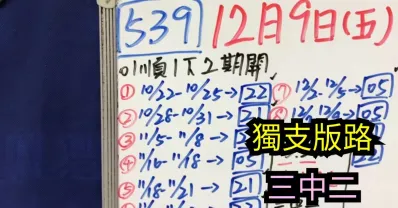 539 12月9日(五)
順1下2期開
① 10/22-10/25→22
② 10/28-10/31→
③ 11/5-11/8→
④ 11/16-11/18→05
⑤ 11/18-11/21→21
⑦ 12/2-12/5→05
05
22
獨支版路
三中二